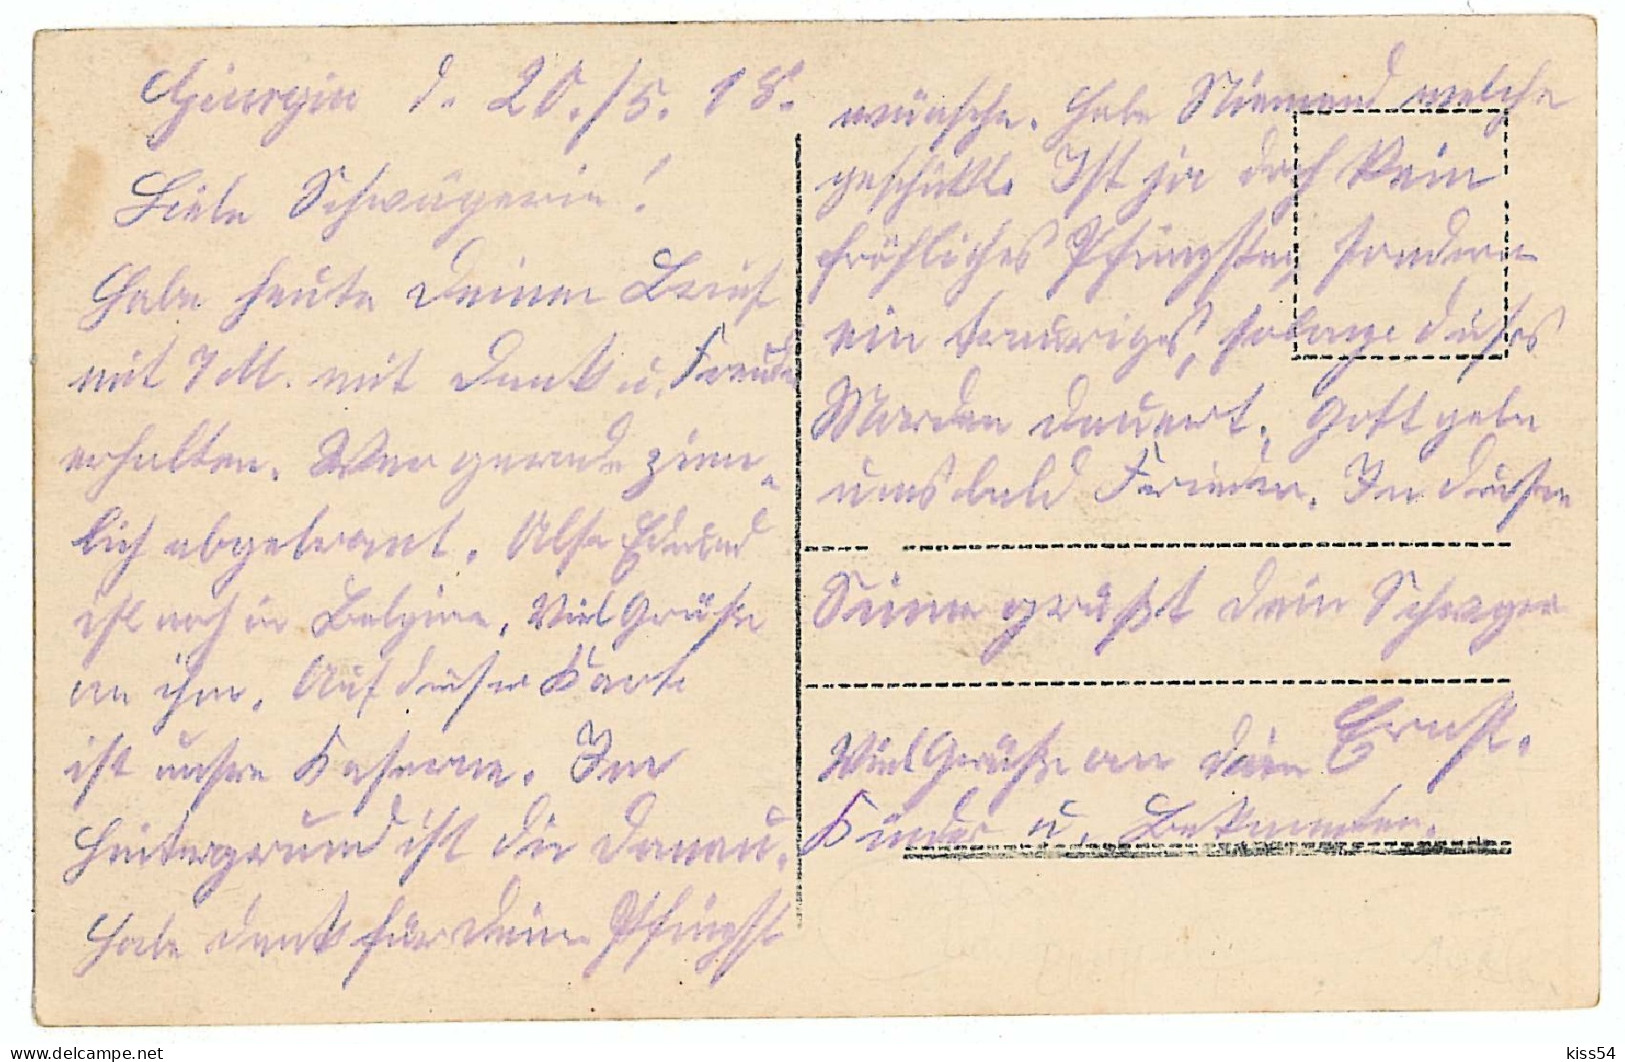 Giurgiu d. 20./5. 18.
Liebe Schwägerin!
Habe heute Deinen Brief
mit 7 M. mit Dank u. Freude
erhalten. War gerade ziem-
lich abgebrannt. Also Edmund
ist noch in Belgien. Viel Grüße
an ihn. Auf dieser Karte
ist unsere Kaserne. Im
Hintergrund ist die Donau.
Habe dank für Deine Pfingst
wünsche. Habe Niemand welche
geschickt. Ist ja doch kein
fröhliches Pfingsten sondern
ein trauriges, solange dieses
Morden dauert. Gott gebe
uns bald Frieden. In diesem
Sinne grüßt Dein Schwager
Ernst.
Viel Grüße an Deine
Kinder u. Bekannten.
kiss54